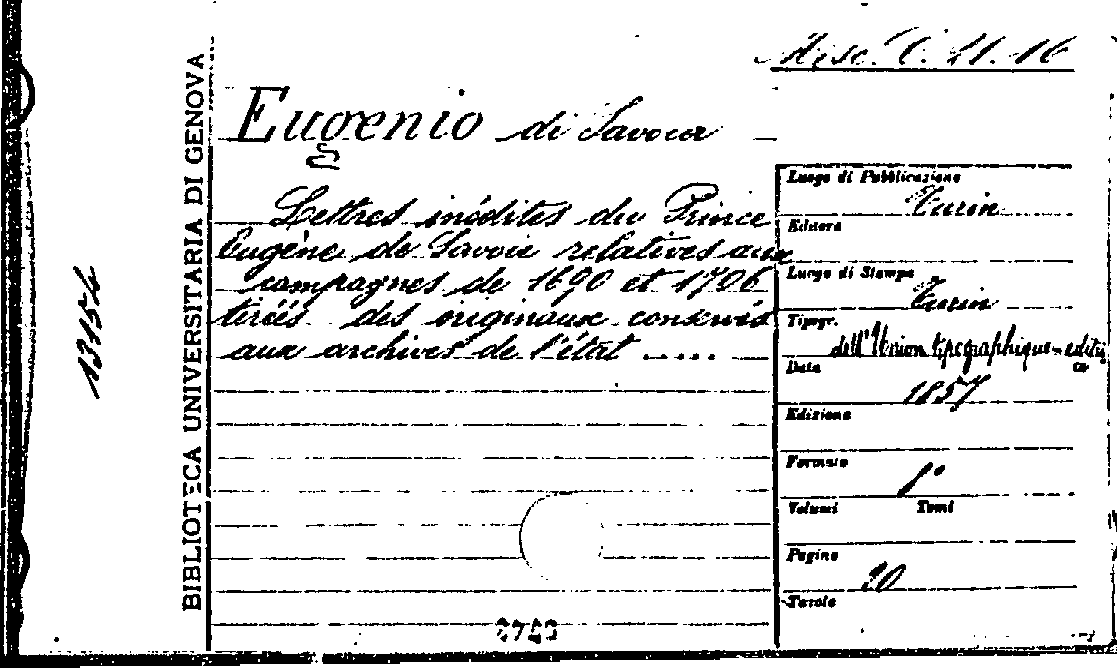 Misc. C. 21. 16
Eugenio di Savoia
Lettres inédites du Prince
Eugène de Savoie relatives aux
campagnes de 1690 et 1706
tirées des originaux conservés
aux archives de l'état .....
BIBLIOTECA UNIVERSITARIA DI GENOVA
13154
Luogo di Pubblicazione
Turin
Editore
Luogo di Stampa
Turin
Tipogr.
dell'Union typographique-editri
ce
Data
1857
Edizione
Formato
8°
Volumi Tomi
Pagine
20
Tavole